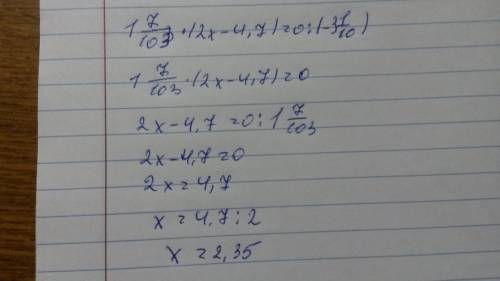 1 7/103 · (2x - 4,7) = 0 : (-3 1/10)
1 7/103 · (2x - 4,7) = 0
2x - 4,7 = 0 : 1 7/103
2x - 4,7 = 0
2x = 4,7
x = 4,7 : 2
x = 2,35